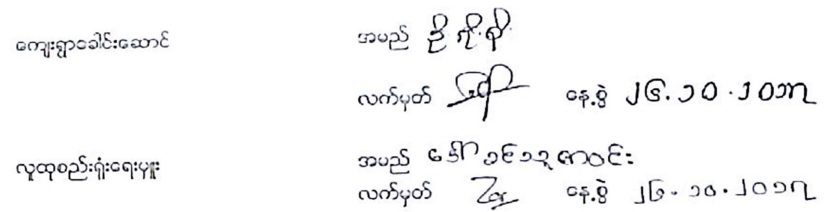 ကျေးရွာခေါင်းဆောင် အမည် ဦး
လက်မှတ် နေ့စွဲ ၂၆.၁၀.၂၀၁၇
လူထုစည်းရုံးရေးမှူး အမည် ဒေါ်
လက်မှတ် နေ့စွဲ ၂၆.၁၀.၂၀၁၇